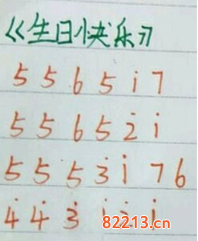 《生日快乐》
5 5 6 5 i 7
5 5 6 5 2̇ i
5 5 5 3̇ i 7 6
4̇ 4̇ 3̇
82213.cn